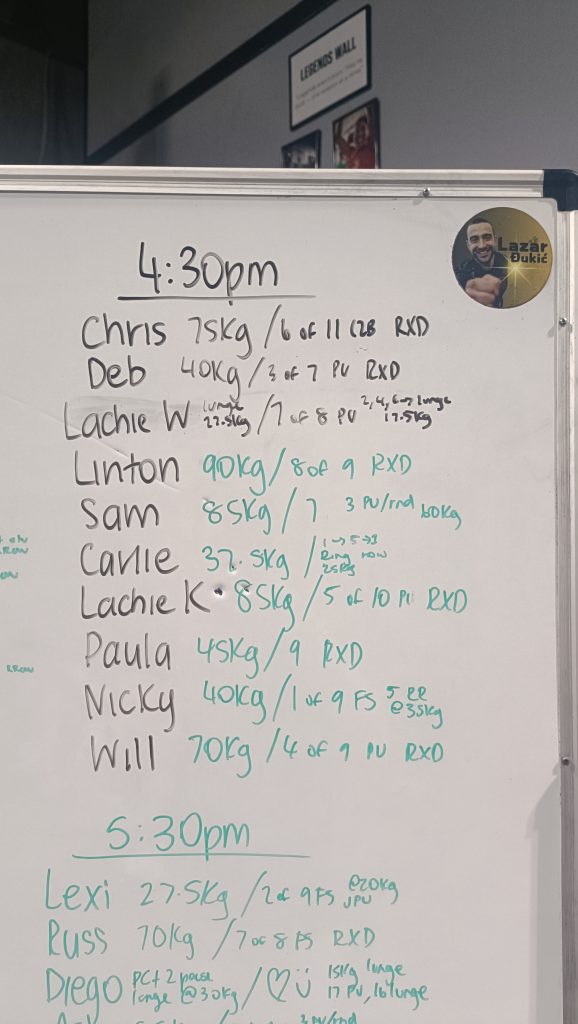 LEGENDS WALL
Lazar
Đukić
4:30pm
Chris 75kg / 6 of 11 C2B RXD
Deb 40kg / 3 of 7 PU RXD
Lachie W lunge 22.5kg / 7 of 8 PU 2, 4, 6 → lunge 17.5kg
Linton 90kg / 8 of 9 RXD
Sam 85kg / 7 3 PU/rnd 60kg
Carlie 37.5kg / 1 → 5 → 3 Ring row 25kg
Lachie K 85kg / 5 of 10 PU RXD
Paula 45kg / 9 RXD
Nicky 40kg / 1 of 9 FS 5 RR @35kg
Will 70kg / 4 of 9 PU RXD
5:30pm
Lexi 27.5kg / 2 of 9 FS @20kg JPU
Russ 70kg / 7 of 8 FS RXD
Diego PC + 2 pause lunge @30kg / ♡ü 15kg lunge 17 PU, 16 lunge
3 PU/rnd